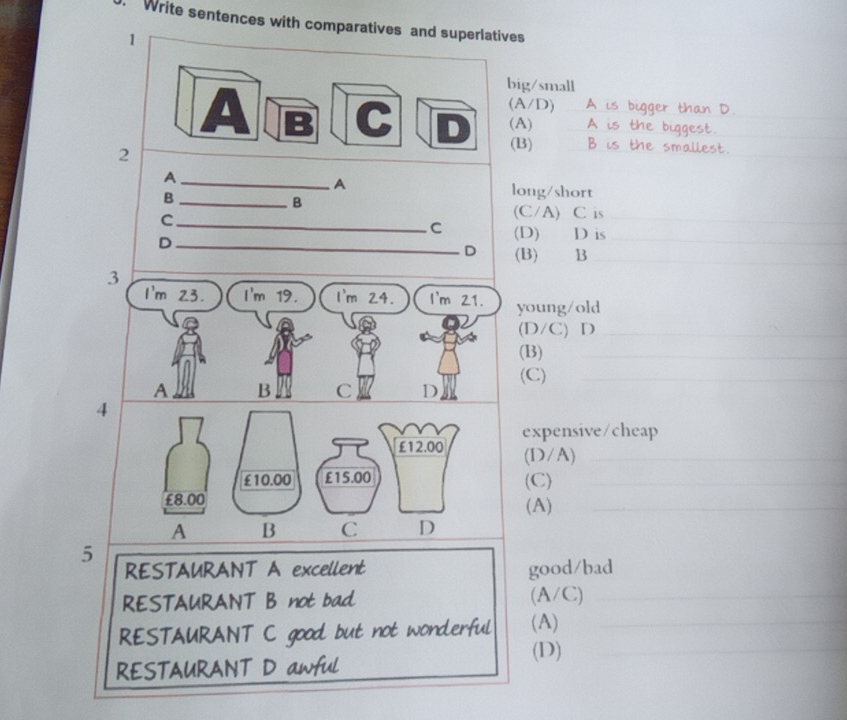 Write sentences with comparatives and superlatives
1
A B C D
big/small
(A/D) A is bigger than D.
(A) A is the biggest.
(B) B is the smallest.
2
A A
B B
C C
D D
long/short
(C/A) C is
(D) D is
(B) B
3
I'm 23. I'm 19. I'm 24. I'm 21.
A B C D
young/old
(D/C) D
(B)
(C)
4
£8.00 £10.00 £15.00 £12.00
A B C D
expensive/cheap
(D/A)
(C)
(A)
5
RESTAURANT A excellent
RESTAURANT B not bad
RESTAURANT C good but not wonderful
RESTAURANT D awful
good/bad
(A/C)
(A)
(D)